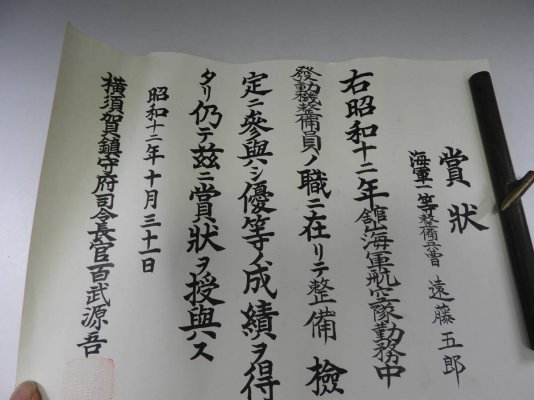 賞狀
海軍一等整備兵曹 遠藤五郎
右昭和十二年館山海軍航空隊勤務中
發動機整備員ノ職ニ在リテ整備檢
定ニ參與シ優等ノ成績ヲ得
タリ仍テ玆ニ賞狀ヲ授與ス
昭和十二年十月三十一日
横須賀鎮守府司令長官百武源吾